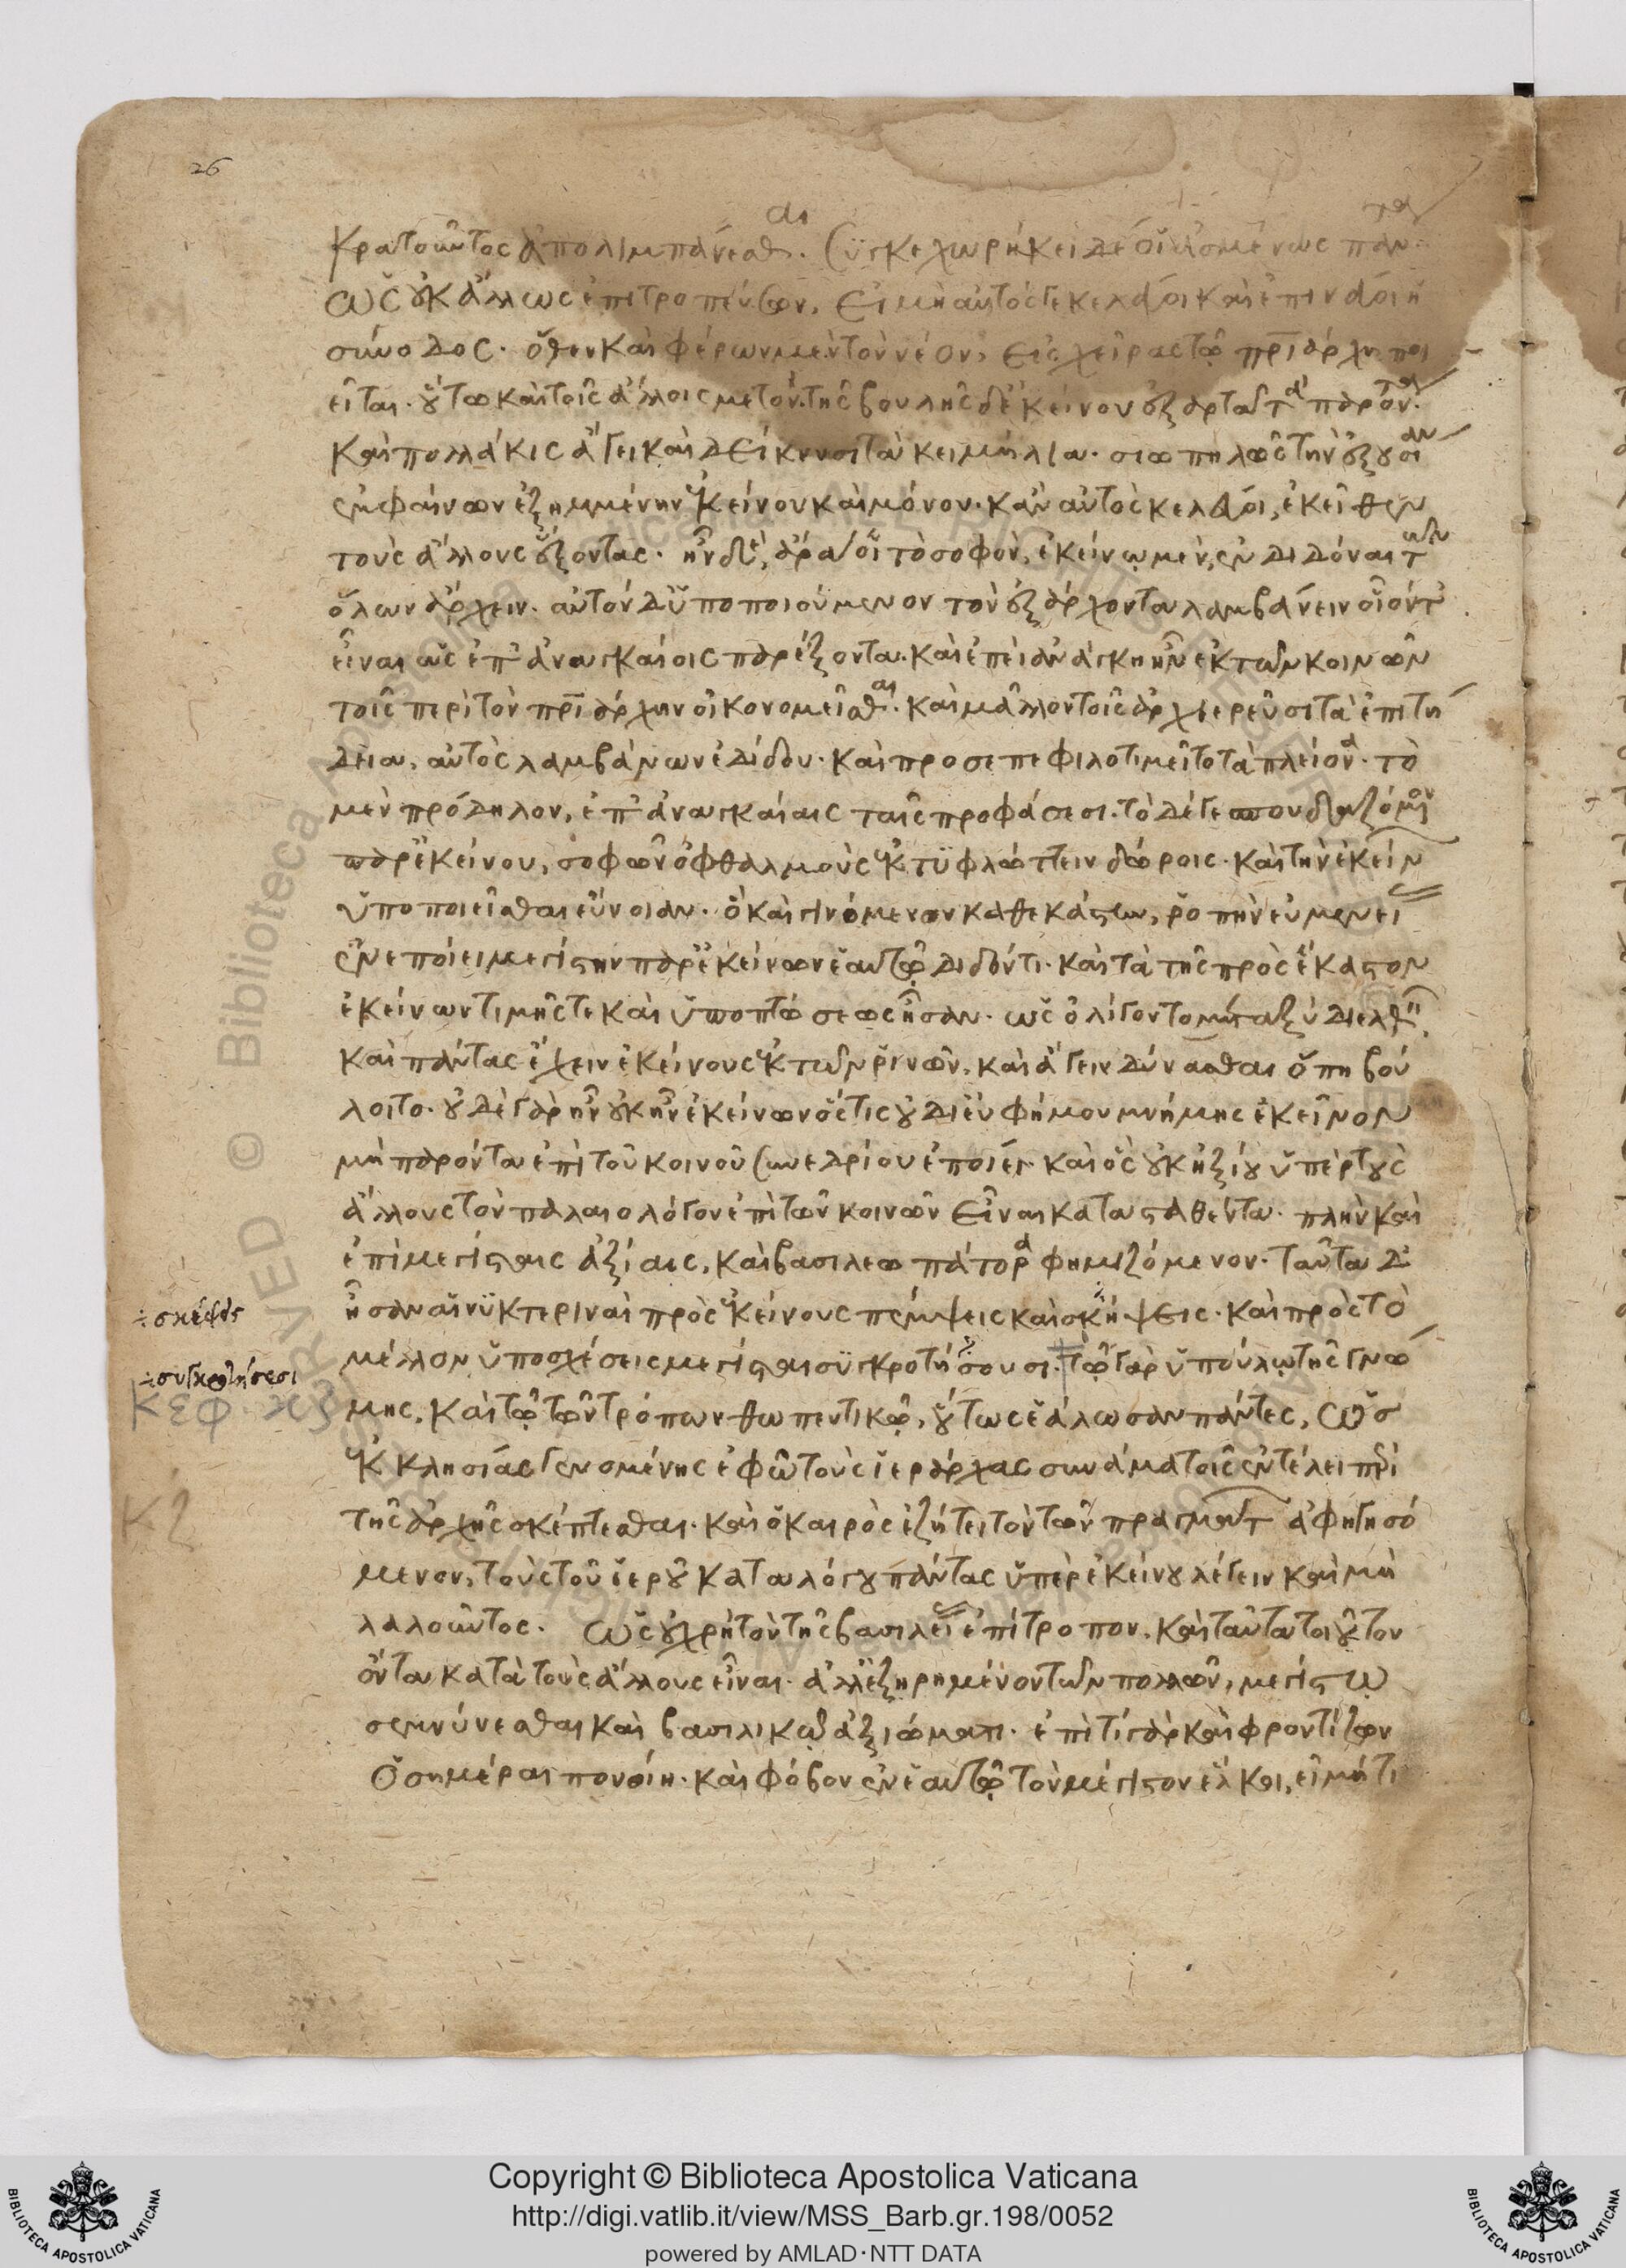 26
κρατοῦντος ἀπολιμπάνεσθαι. συγκεχωρήκει δέ οἱ ἀσμένως πάντα
ὡς οὐκ ἄλλως ἐπιτροπεύσων, εἰ μὴ αὐτός τε κελεύοι καὶ ἐπινεύοι ἡ
σύνοδος. ὅθεν καὶ φέρων μὲν τὸν νέον, εἰς χεῖρας τῷ πριάρχῃ ποι
εῖται. οὕτω καὶ τοῖς ἄλλοις μετὸν τῆς βουλῆς δ' ἐκείνου ἐξαρτᾶται τὰ παρόντα.
καὶ πολλάκις ἄγει καὶ δείκνυσι τὰ κειμήλια. σιωπηλῶς τὴν ἐξουσίαν
ἐμφαίνων ἐξημμένην ἐκείνου καὶ μόνον. κἂν αὐτὸς κελεύοι, ἐκεῖθεν
τοὺς ἄλλους ἕξοντας. ἦν δὲ, ἄρα οἱ τὸ σοφὸν, ἐκείνῳ μὲν, ἐνδιδόναι τῶν
ὅλων ἄρχειν. αὐτὸν δ' ὑποποιούμενον τὸν ἐξάρχοντα λαμβάνειν οἷόν τ'
εἶναι ὡς ἐπ' ἀναγκαίοις παρέξοντα. καὶ ἐπεὶ ἀνάγκη ἦν ἐκ τῶν κοινῶν
τοῖς περὶ τὸν πριάρχην οἰκονομεῖσθαι. καὶ μᾶλλον τοῖς ἀρχιερεῦσι τὰ ἐπιτή
δεια, αὐτὸς λαμβάνων ἐδίδου. καὶ προσεπεφιλοτιμεῖτο τὰ πλείονα. τὸ
μὲν πρόδηλον, ἐπ' ἀναγκαίαις ταῖς προφάσεσι. τὸ δέ γε σπουδαζόμενον
παρ' ἐκείνου, σοφῶν ὀφθαλμοὺς ἐκτυφλώττειν δώροις. καὶ τὴν ἐκείνων
ὑποποιεῖσθαι εὔνοιαν. ὃ καὶ γινόμενον καθεκάστην, ῥοπὴν εὐμενείας
ἐνεποίει μεγίστην παρ' ἐκείνων ἑαυτῷ διδόντι. καὶ τὰ τῆς πρὸς ἕκαστον
ἐκείνων τιμῆς τε καὶ ὑποπτώσεως ἦσαν. ὡς ὀλίγον τὸ μεταξὺ διελθεῖν,
καὶ πάντας ἔχειν ἐκείνους ἐκ τῶν ῥινῶν, καὶ ἄγειν δύνασθαι ὅπη βού
λοιτο. οὐδὲ γὰρ ἦν οὐκ ἦν ἐκείνων ὅστις οὐ δι' εὐφήμου μνήμης ἐκεῖνον
μὴ παρόντα ἐπὶ τοῦ κοινοῦ συνεδρίου ἐποίει. καὶ ὃς οὐκ ἠξίου ὑπὲρ τοὺς
ἄλλους τὸν παλαιολόγον ἐπὶ τῶν κοινῶν εἶναι κατασταθέντα. πλὴν καὶ
ἐπὶ μεγίσταις ἀξίαις, καὶ βασιλεωπάτορα φημιζόμενον. ταῦτα δ'
ἦσαν αἱ νυκτεριναὶ πρὸς ἐκείνους πέμψεις καὶ σκήψεις. καὶ πρὸς τὸ
÷ σκέψεις
μέλλον ὑποσχέσεις μεγίσται συγκροτήσουσι. τῷ γὰρ ὑπούλῳ τῆς γνώ
÷ συγκροτήσεσι
ΚΕΦ. κζ
μης, καὶ τῷ τῶν τρόπων θωπευτικῷ, οὕτως ἑάλωσαν πάντες, ὡς
ἐκκλησίας γενομένης ἐφ' ᾧ τοὺς ἱεράρχας συνάμα τοῖς ἐν τέλει περὶ
κζ
τῆς ἀρχῆς σκέπτεσθαι. καὶ ὁ καιρὸς ἐζήτει τὸν τῶν πραγμάτων ἀφηγησό
μενον, τοὺς τοῦ ἱεροῦ καταλόγου πάντας ὑπὲρ ἐκείνου λέγειν καὶ μὴ
λαλοῦντος. ὡς οὐ χρὴ τὸν τῆς βασιλείας ἐπίτροπον, καὶ ταῦτα τοιοῦτον
ὄντα κατὰ τοὺς ἄλλους εἶναι. ἀλλ' ἐξῃρημένον τῶν πολλῶν, μεγίστῳ
σεμνύνεσθαι καὶ βασιλικῷ ἀξιώματι. ἐπὶ τί γὰρ καὶ φροντίζων
ὁσημέραι πονοίη. καὶ φόβον ἐν ἑαυτῷ τὸν μέγιστον ἕλκοι, εἰ μή τι
Copyright © Biblioteca Apostolica Vaticana
http://digi.vatlib.it/view/MSS_Barb.gr.198/0052
powered by AMLAD·NTT DATA
BIBLIOTECA APOSTOLICA VATICANA
BIBLIOTECA APOSTOLICA VATICANA